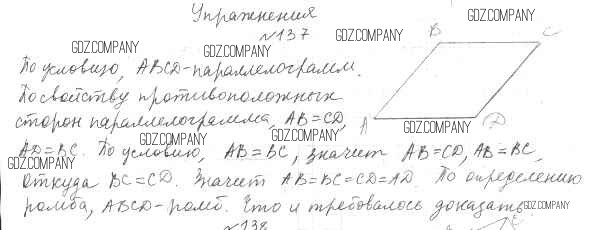 Упражнения
№137
По условию, ABCD-параллелограмм.
По свойству противоположных
сторон параллелограмма, AB=CD,
AD=BC. По условию, AB=BC, значит AB=CD, AB=BC,
откуда BC=CD. Значит AB=BC=CD=AD. По определению
ромба, ABCD-ромб. Что и требовалось доказать.
B
C
A
D
№138
GDZ.COMPANY
GDZ.COMPANY
GDZ.COMPANY
GDZ.COMPANY
GDZ.COMPANY
GDZ.COMPANY
GDZ.COMPANY
GDZ.COMPANY
GDZ.COMPANY
GDZ.COMPANY